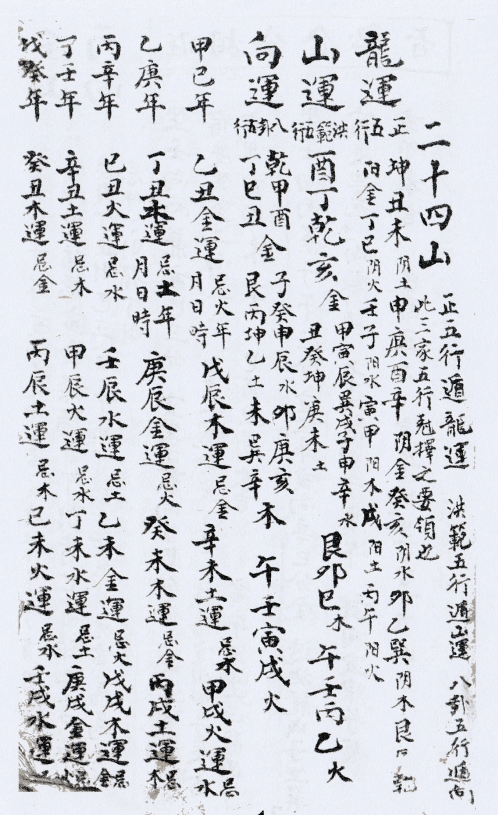 二十四山
正五行遁龍運 洪範五行遁山運 八卦五行遁向
此三家五行尅擇之要領也
龍運 正五行
坤丑未陰土申庚酉辛陰金癸亥陰水卯乙巽陰木艮
陽金丁巳陰火壬子陽水寅甲陽木戌陽土丙午陽火
山運 洪範五行 酉丁乾亥金
甲寅辰巽戌子申辛水
丑癸坤庚未土
艮卯巳木 午壬丙乙火
向運 八卦五行
乾甲酉
丁巳丑金
子癸申辰水卯庚亥
艮丙坤乙土未巽辛木
午壬寅戌火
甲巳年 乙丑金運忌火年月日時 戊辰木運忌金 辛未土運忌木 甲戌火運忌水
乙庚年 丁丑木運忌土年月日時 庚辰金運忌火 癸未木運忌金 丙戌土運忌木
丙辛年 巳丑火運忌水 壬辰水運忌土 乙未金運忌火 戊戌木運忌金
丁壬年 辛丑土運忌木 甲辰火運忌水 丁未水運忌土 庚戌金運忌火
戊癸年 癸丑木運忌金 丙辰土運忌木 己未火運忌水 壬戌水運